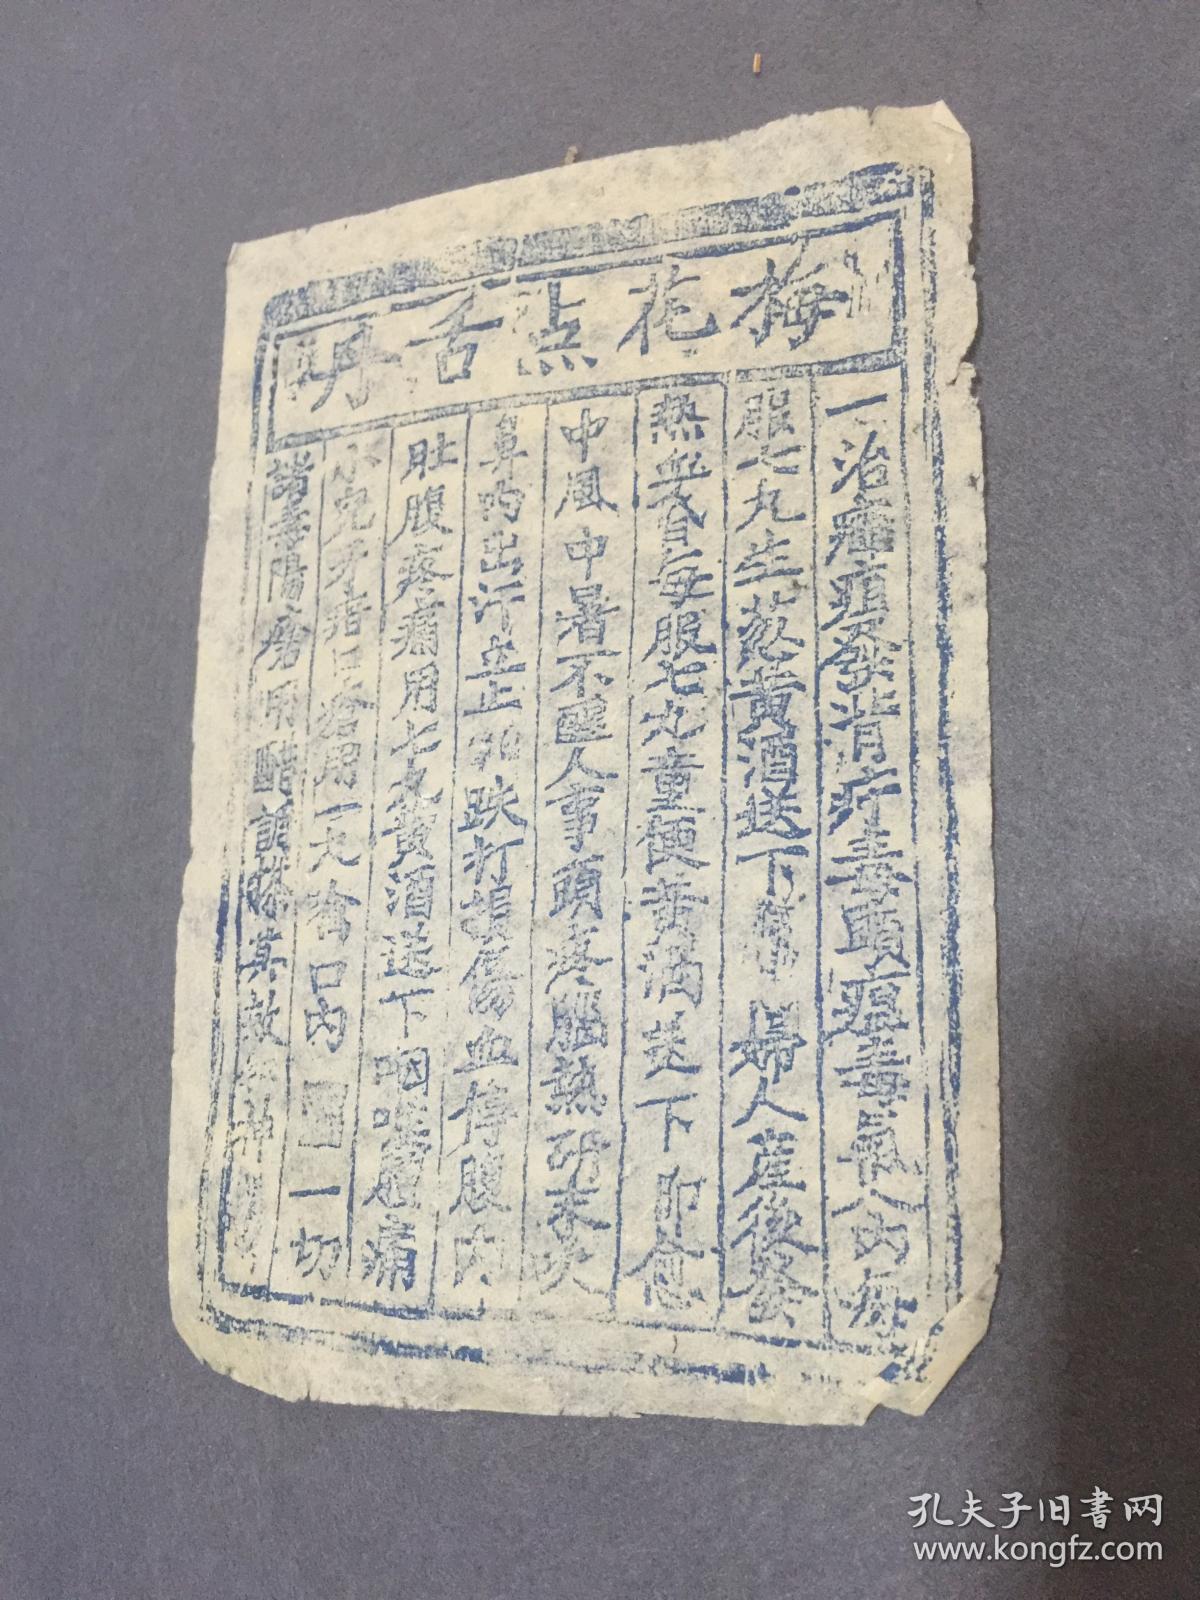 梅花点舌丹
一治癰疽發背疔毒時疫毒氣入內每
服七丸生葱黄酒送下 婦人産後發
熱血昏每服七丸童便黄酒送下即愈
中風中暑不醒人事頭疼腦熱研末吹
鼻内出汗立止 跌打損傷血停腹内
肚腹疼痛用七丸黄酒送下咽喉腫痛
小兒牙疳口瘡用一丸噙口内 一切
諸毒陽瘡用醋前塗其敷
孔夫子旧书网
www.kongfz.com